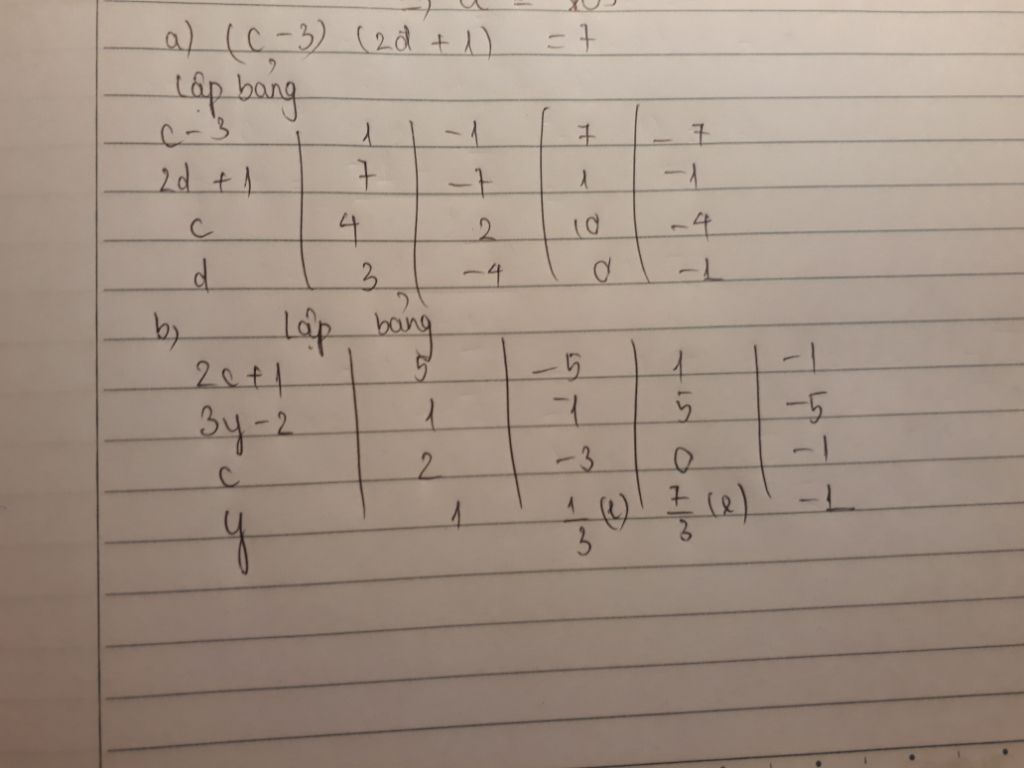 a) (c-3) (2d+1) = 7
Lập bảng
c-3 1 -1 7 -7
2d+1 7 -7 1 -1
c 4 2 10 -4
d 3 -4 0 -1
b, Lập bảng
2c+1 5 -5 1 -1
3y-2 1 -1 5 -5
c 2 -3 0 -1
y 1 1/3 (l) 7/3 (l) -1